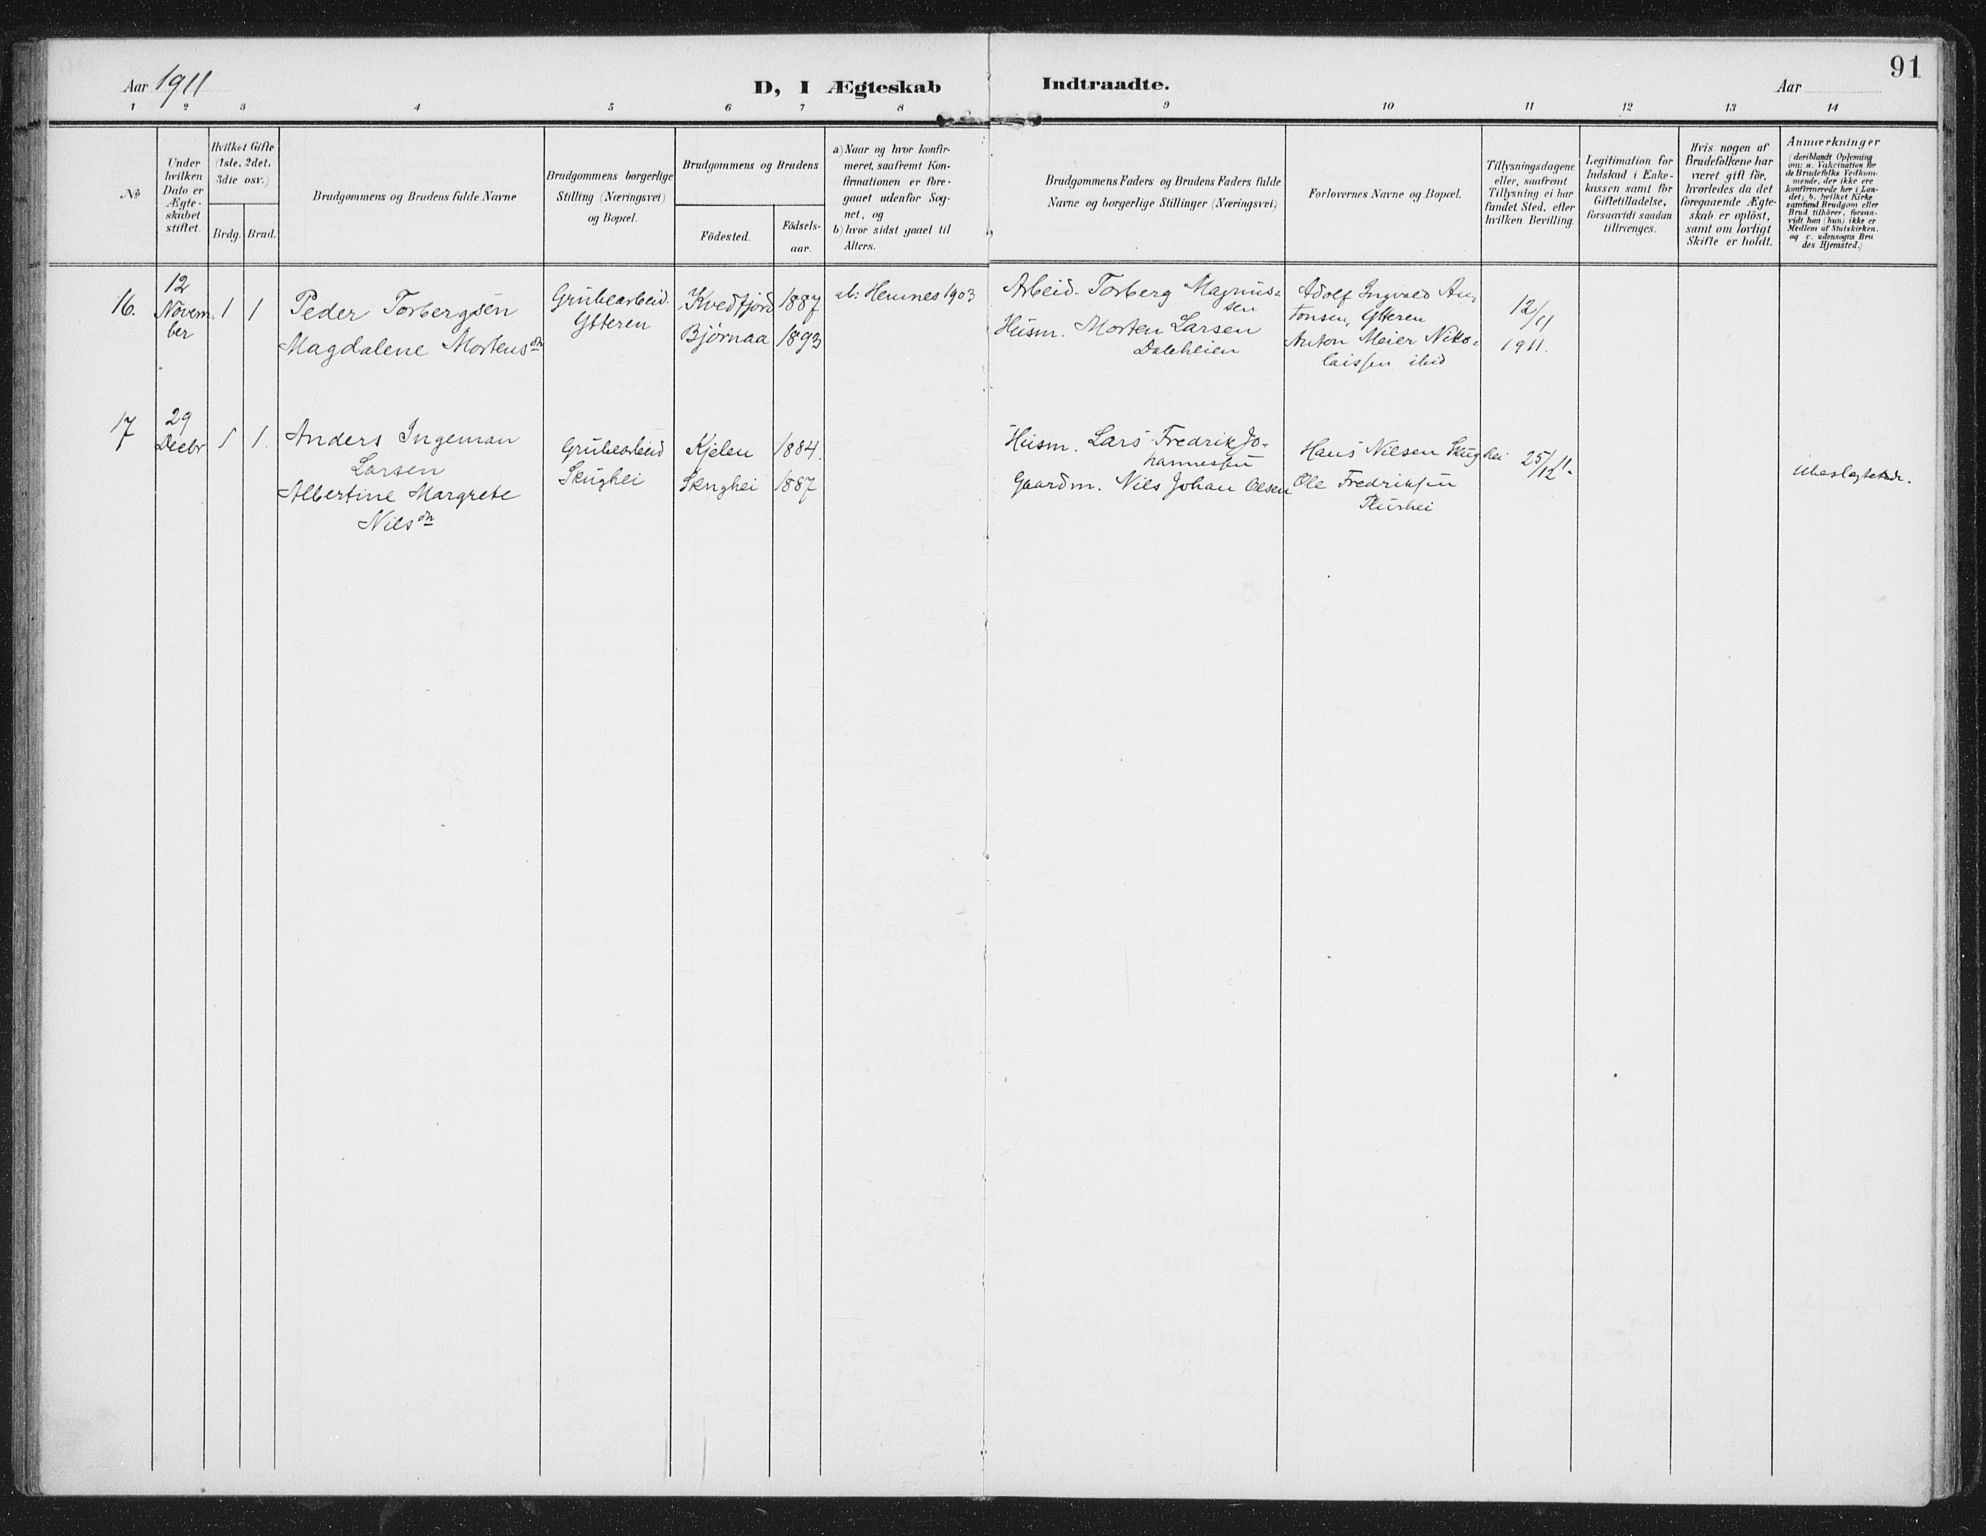 91
Aar 1911
D, I Ægteskab Indtraadte.
Aar
1 2 3 4 5 6 7 8 9 10 11 12 13 14
No
Under
hvilken
Dato er
Ægte-
skabet
stiftet.
Hvilket Gifte
(1ste, 2det,
3die osv.)
Brdg. Brud.
Brudgommens og Brudens fulde Navne
Brudgommens borgerlige
Stilling (Næringsvei)
og Bopæl.
Brudgommens og Brudens
Fødested.
Fødsels-
aar.
a) Naar og hvor konfir-
meret, saafremt Kon-
firmationen er fore-
gaaet udenfor Sog-
net, og
b) hvor sidst gaaet til
Alters.
Brudgommens Faders og Brudens Faders fulde
Navne og borgerlige Stillinger (Næringsvei)
Forlovernes Navne og Bopæl.
Tillysningsdagene
eller, saafremt
Tillysning ei har
fundet Sted, efter
hvilken Bevilling.
Legitimation for
Indskud i Enke-
kassen samt for
Giftetilladelse,
forsaavidt saadan
tiltrænges.
Hvis nogen af
Brudefolkene har
været gift før,
hvorledes da det
foregaaende Ægte-
skab er opløst,
samt om lovligt
Skifte er holdt.
Anmærkninger
(deriblandt Oplysning
om: a. Vakcination for
de Brudefolks Vedkom-
mende, der ikke ere
konfirmerede her i Lan-
det; b. hvilket Kirke
samfund Brudgom eller
Brud tilhører, forsaa-
vidt han (hun) ikke er
Medlem af Statskirken,
og c. udensogns Bru
des Hjemsted.)
16.
12
Novem-
ber
1 1
Peder Torbergsen
Magdalene Mortensdn
Grubearbeid.
Ytteren
Kvedfjord 1887
Bjørnaa 1893
ab: Hemnes 1903
Arbeid. Torberg Magnus-
sen
Husm. Morten Larsen
Dalehleien
Adolf Ingvald An-
tonsen, Ytteren
Anton Meier Niko-
laissen ibid
12/11
1911.
17
29
Decbr
1 1.
Anders Ingeman
Larsen
Albertine Margrete
Nilsdn
Grubearbeid
Skughei
Kjelen 1884.
Skughei 1887
Husm. Lars Fredrik Jo-
hannessen
Gaardm. Nils Johan Olsen
Hans Nilsen Skughei
Ole Fredriksen
25/12 11.
Ubeslægtede.